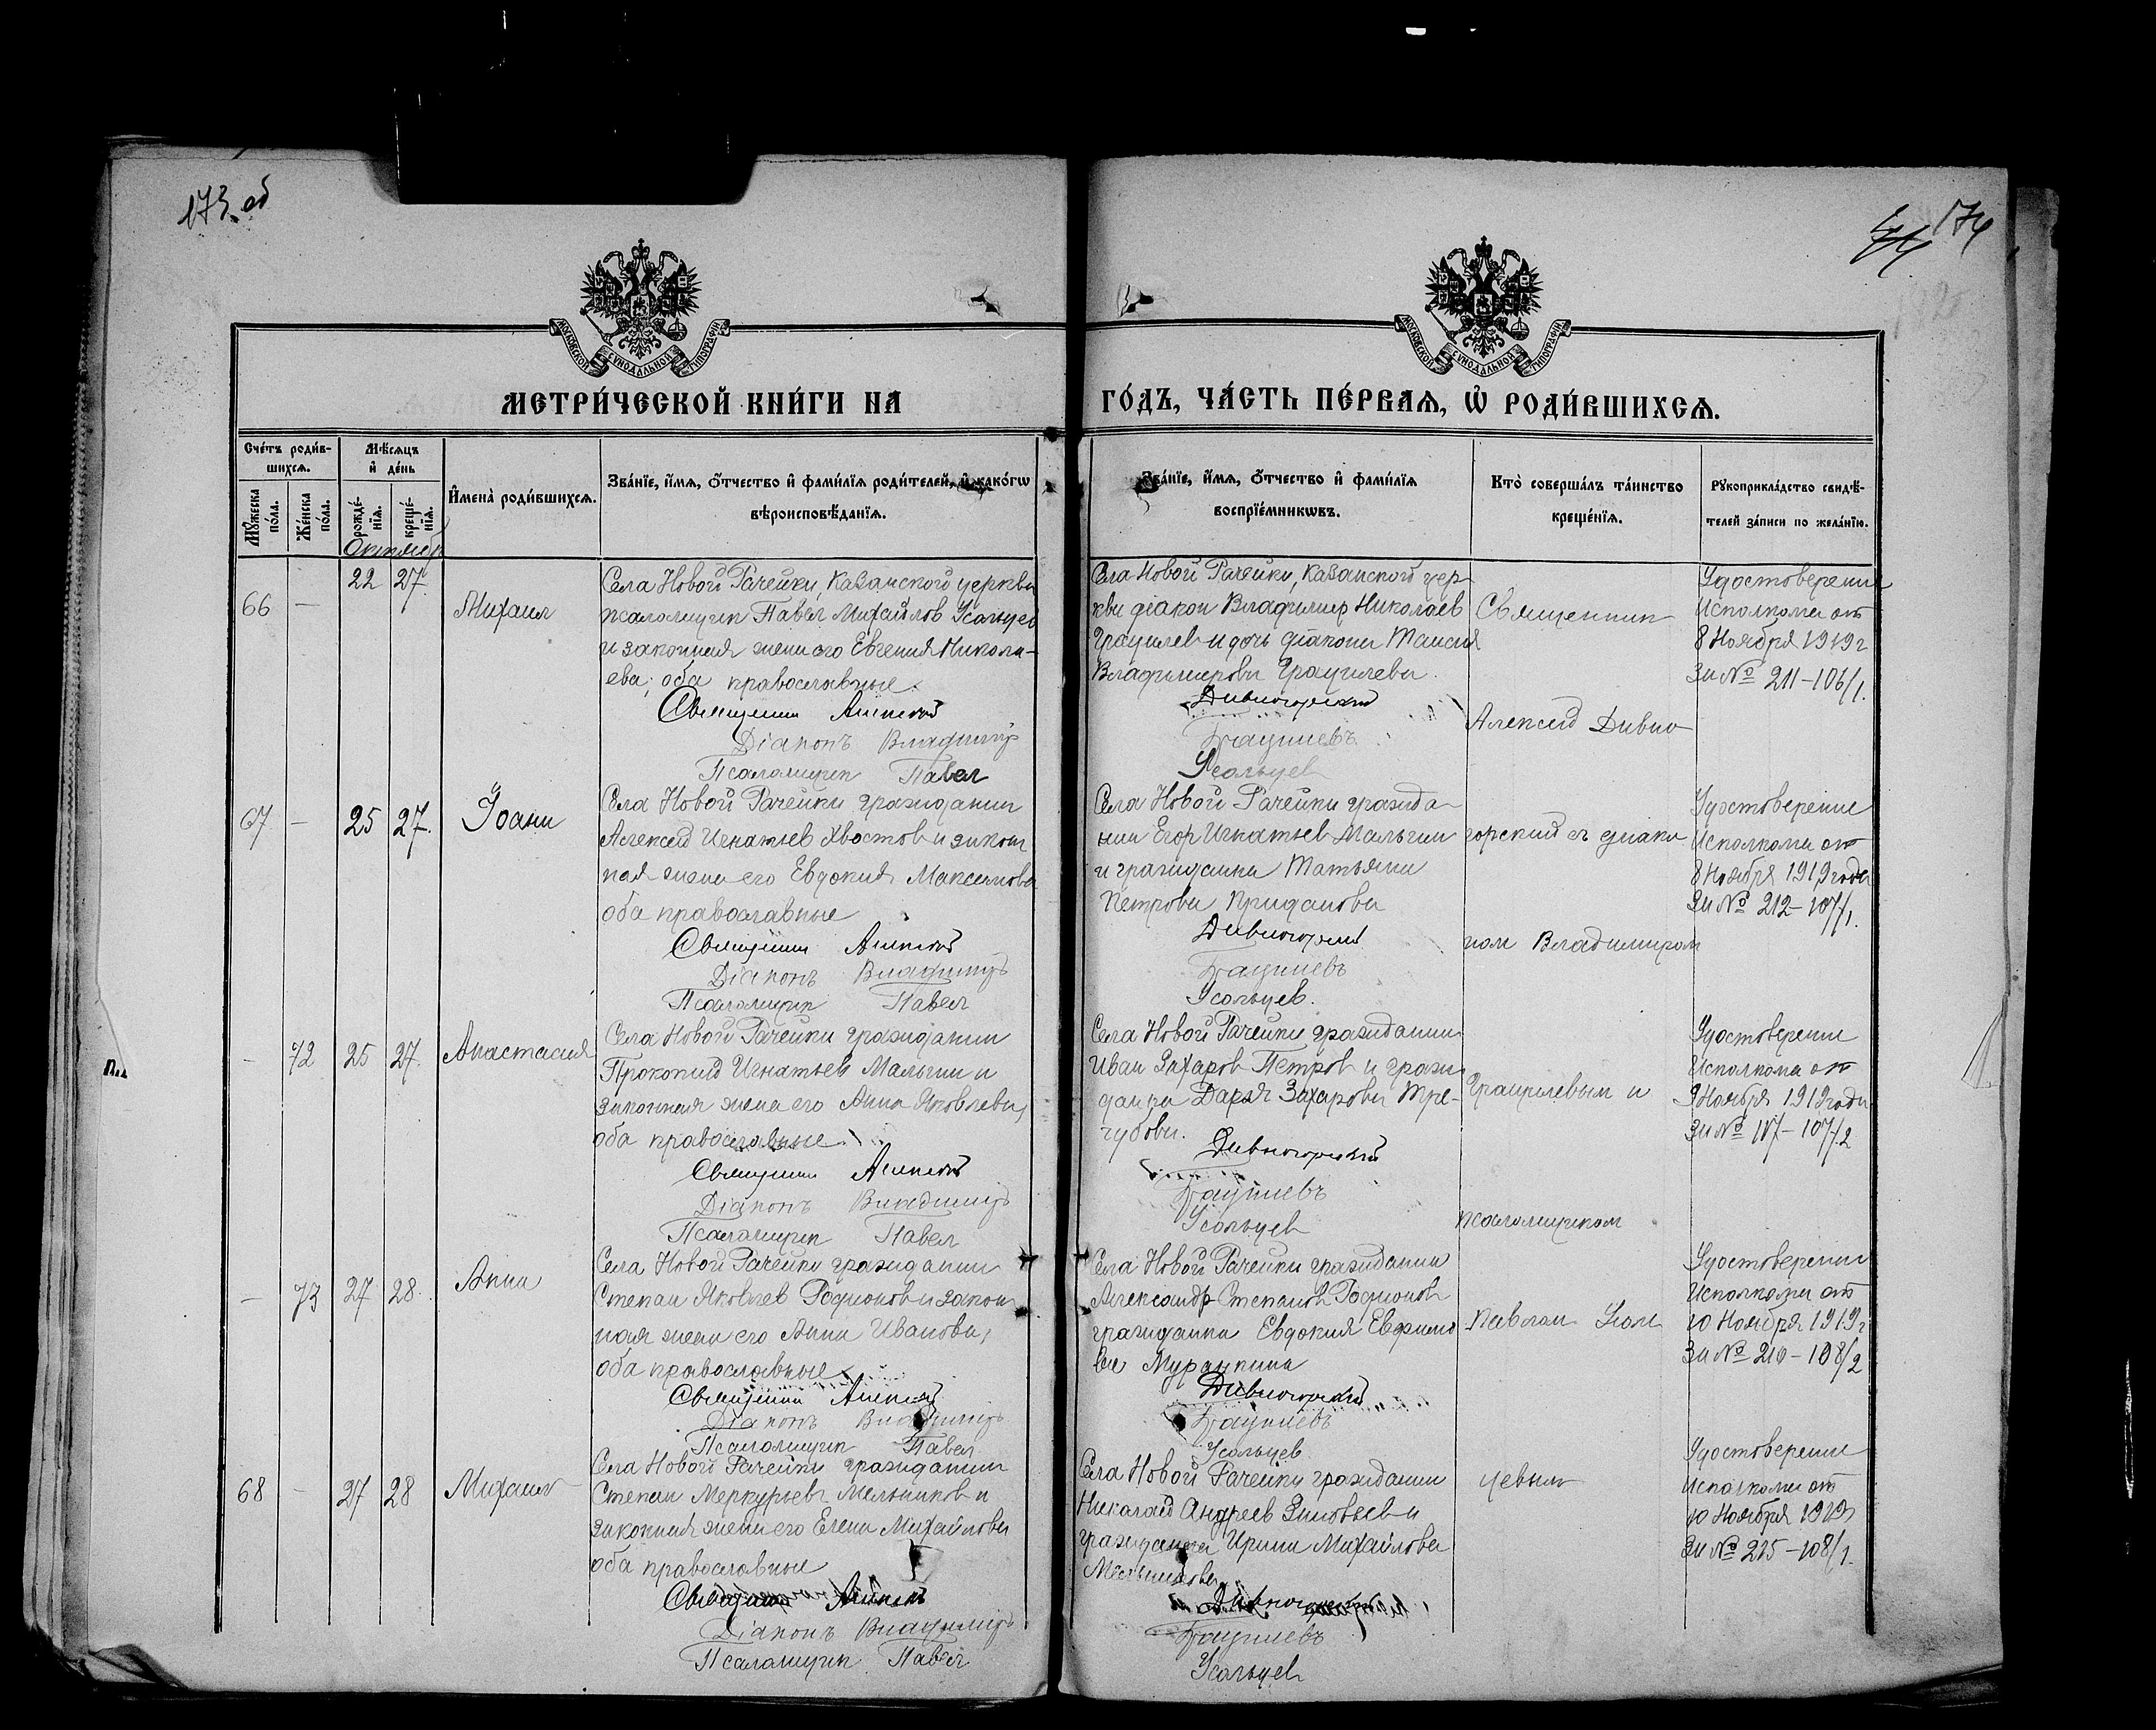 173 об
174
МОСКОВСКОЙ СѴНОДАЛЬНОЙ ТИПОГРАФІИ
МОСКОВСКОЙ СѴНОДАЛЬНОЙ ТИПОГРАФІИ
МЕТРИ́ЧЕСКОЙ КНИ́ГИ НА ГО́ДЪ, ЧА́СТЬ ПЕ́РВАѦ, Ѡ҆ РОДИ́ВШИХСѦ.
Сче́тъ роди́в-
шихсѧ.
Мѣ́сѧцъ
и҆ де́нь
Мꙋ́жеска
по́ла.
Же́нска
по́ла.
рожде́-
нїѧ.
креще́-
нїѧ.
И҆мена̀ роди́вшихсѧ.
Зва́нїе, и҆́мѧ, ѻ҆́тчество и҆ фами́лїѧ роди́телей, и҆ како́гѡ
вѣроисповѣ́данїѧ.
Зва́нїе, и҆́мѧ, ѻ҆́тчество и҆ фами́лїѧ
воспрїе́мникѡвъ.
Кто̀ соверша́лъ та́инство
креще́нїѧ.
Рꙋкоприкла́дство свидѣ́-
телей за́писи по жела́нїю.
Октябрь
66 — 22 27. Михаил
Села Новой Рачейки, Казанского церкви
псаломщик Павел Михайлов Усольцев
и законная жена его Евгения Никола-
ева; оба православные.
Священник Алексей
Діаконъ Владимир
Псаломщик Павел
Села Новой Рачейки, Казанского цер-
кви діакон Владимир Николаев
и дочь діакона Таисия
Владимирова
Дивногорский
Усольцев
Священник
Алексей Дивно-
Удостоверение
Исполкома от
8 Ноября 1919 г
За № 211-106/1.
67 — 25 27. Іоанн
Села Новой Рачейки гражданин
Алексей Игнатьев Хвостов и закон
ная жена его Евдокия Максимова
оба православные
Священник Алексей
Діаконъ Владимиръ
Псаломщик Павел
Села Новой Рачейки гражда-
нин Егор Игнатьев Малыгин
и гражданка Татьяна
Петрова
Дивногорский
Усольцев.
горский съ диако
ном Владимиром
Удостоверение
Исполкома от
8 Ноября 1919 года
За № 212-107/1.
— 72 25 27. Анастасия
Села Новой Рачейки гражданин
Прокопий Игнатьев Малыгин и
законная жена его Анна Яковлева,
оба православные
Священник Алексей
Діаконъ Владимиръ
Псаломщик Павел
Села Новой Рачейки гражданин
Иван Захаров Петров и граж-
данка Дарья Захарова Тре-
губова.
Дивногорский
Усольцев
и
псаломщиком
Удостоверение
Исполкома от
Ноября 1919 года
За № 107/2
— 73 27 28. Анна
Села Новой Рачейки гражданин
Степан Яковлев Родионов и закон
ная жена его Анна Иванова,
оба православные
Священник Алексей
Діаконъ Владимиръ
Псаломщик Павел
Села Новой Рачейки гражданин
Александр Степанов Родионов
гражданка Евдокия Ефимо
ва
Дивногорский
Усольцев
Павлом Усоль
Удостоверение
Исполкома от
10 Ноября 1919 г
За № 210-108/2
68 — 27 28 Михаил
Села Новой Рачейки гражданин
Степан Меркурьев Мельников и
законная жена его Елена Михайлова
оба православные
Священник Алексей
Діаконъ Владимиръ
Псаломщик Павел
Села Новой Рачейки гражданин
Николай Андреев Зиновьев и
гражданка Ирина Михайлова
Мельникова
Дивногорский
Усольцев
цевым
Удостоверение
Исполкома от
10 Ноября 1919
За № 215-108/1.